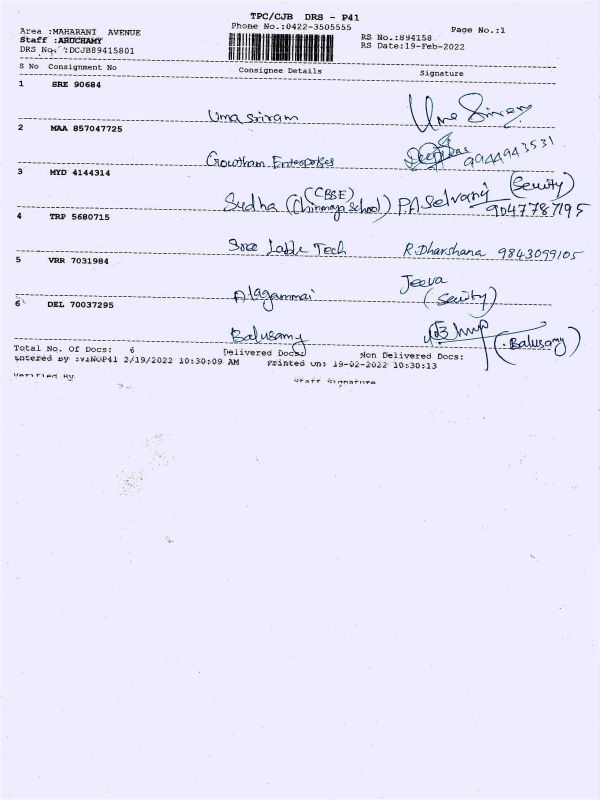 TPC/CJB DRS - P41
Area :MAHARANI AVENUE Phone No.:0422-3505555 Page No.:1
Staff :ARUCHAMY RS No.:894158
DRS No. :DCJB89415801 RS Date:19-Feb-2022
S No Consignment No Consignee Details Signature
1 SRE 90684
Uma sriram
2 MAA 857047725
Gowtham Enterprises 9944943531
3 MYD 4144314
Sudha (Chinmaya School) (CBSE) P.A Selvamy (Seuity) 9047787195
4 TRP 5680715
Sree Lable Tech R.Dharshana 9843099105
5 VRR 7031984
Alagammai Jeeva (Seuity)
6 DEL 70037295
Balusamy (Balusamy)
Total No. Of Docs: 6 Delivered Docs: Non Delivered Docs:
Entered By :VINOP41 2/19/2022 10:30:09 AM Printed On: 19-02-2022 10:30:13
Verified By Staff Signature